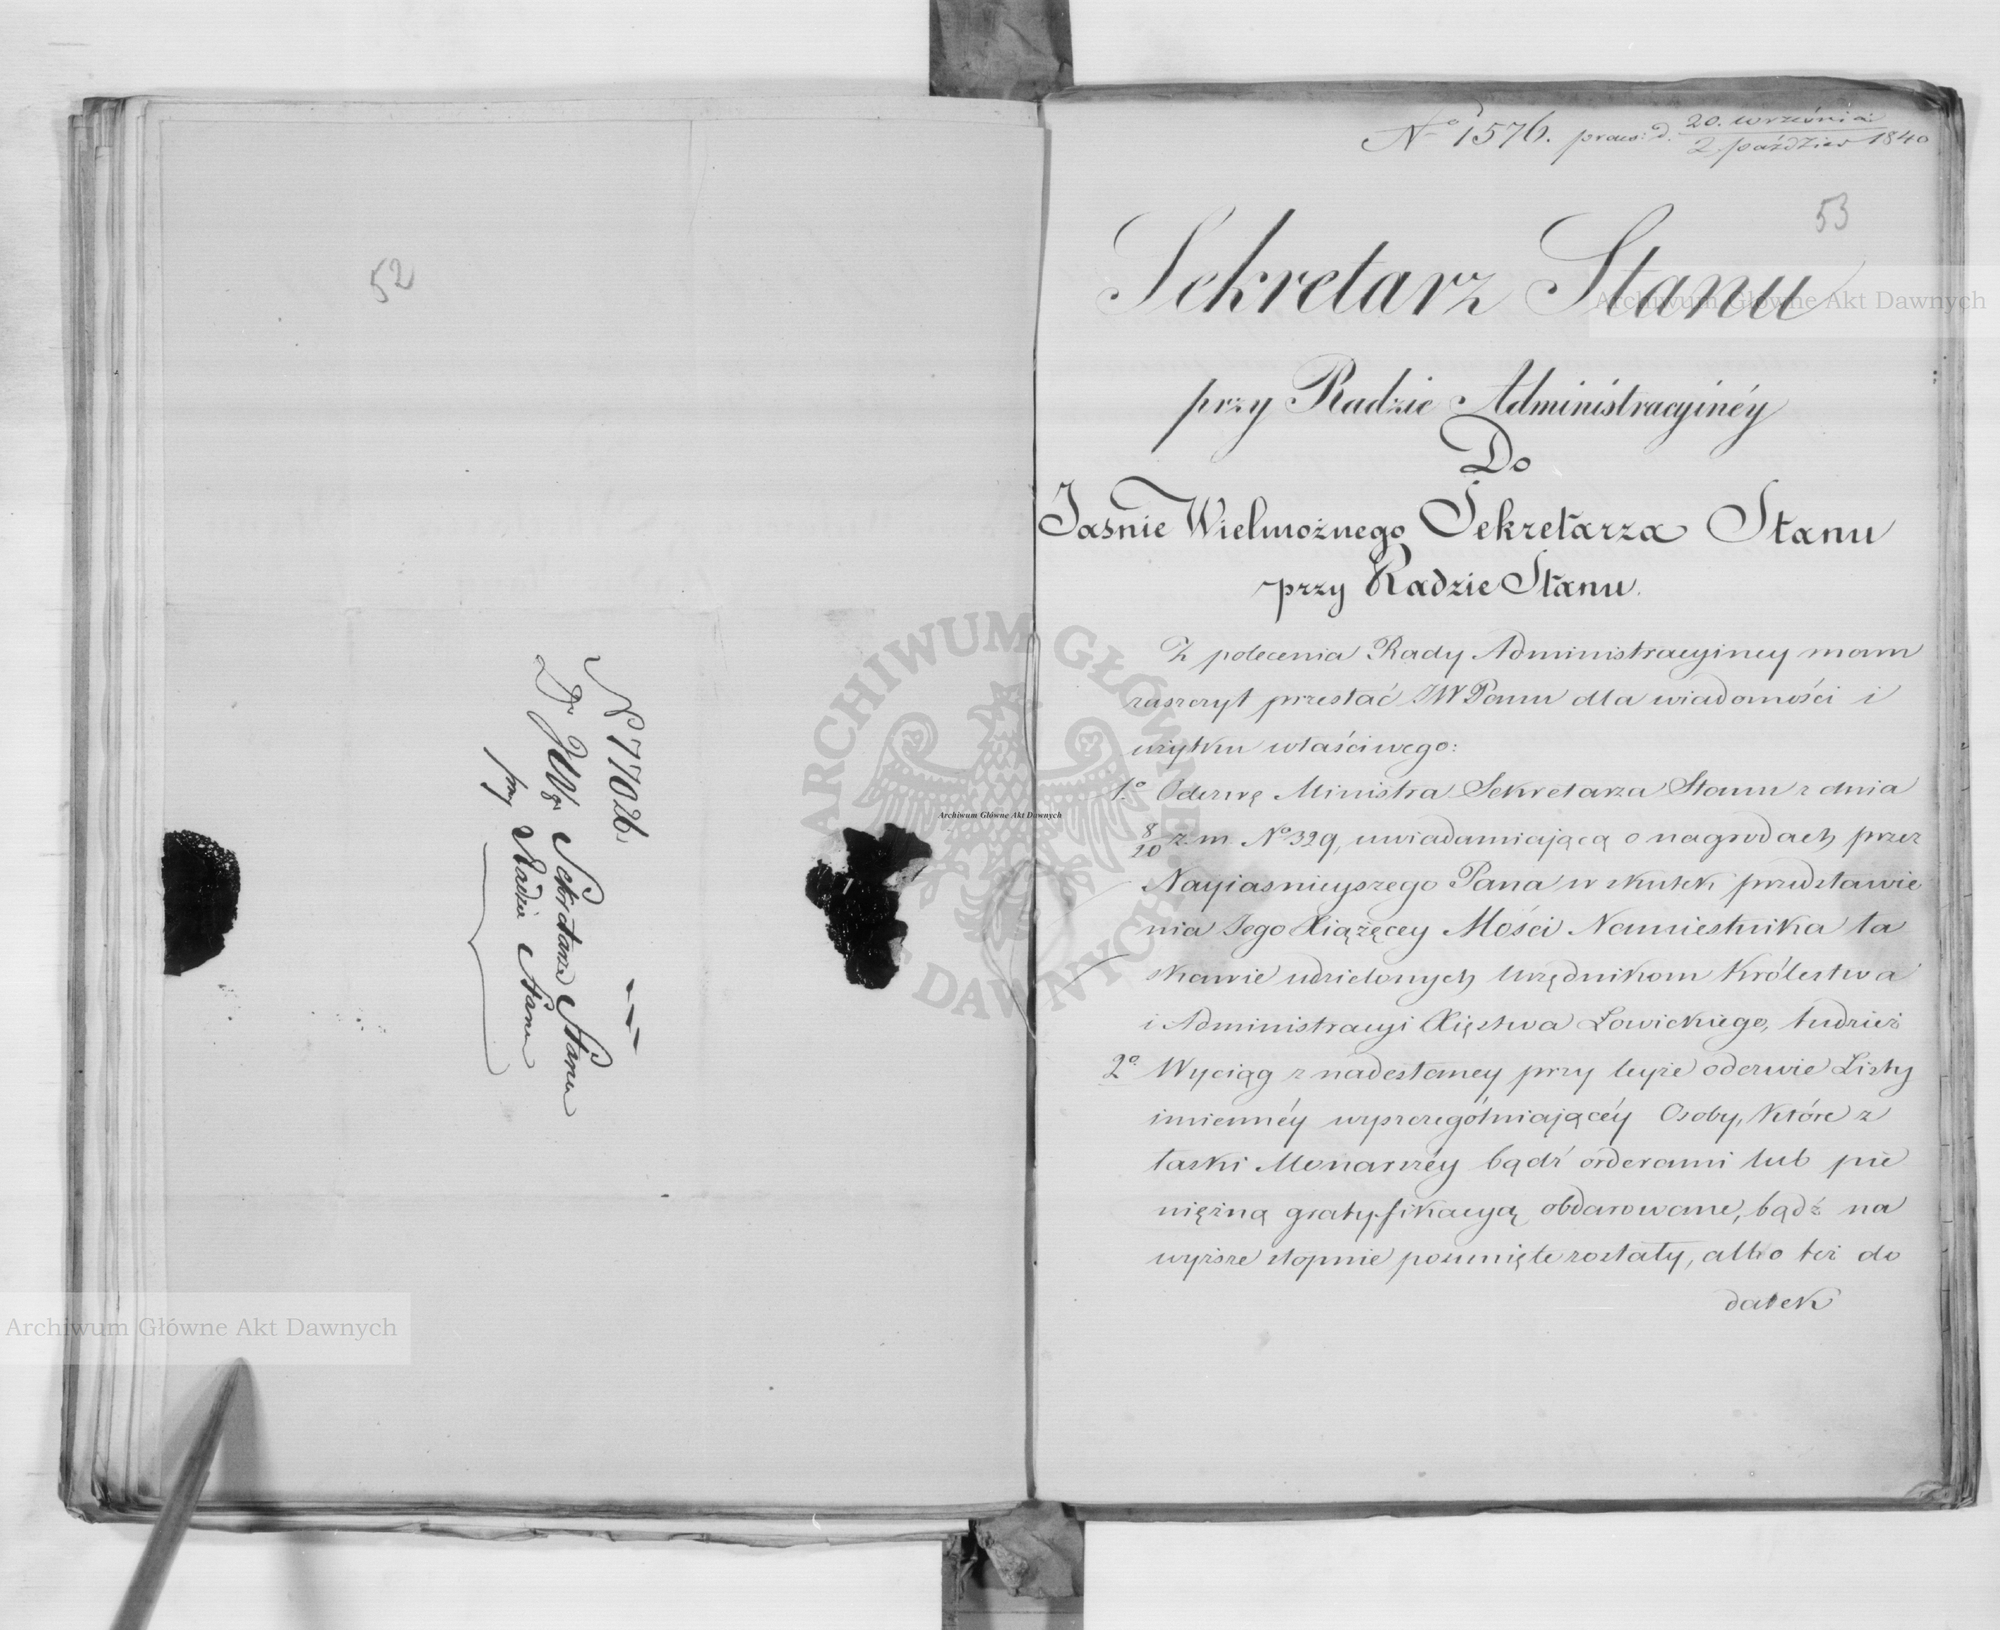 52
N 17026,
Do JW° Sekretarza Stanu
przy Radzie Stanu
N° 1576. praes: d. 20. września / 2. paździer 1840
53
Sekretarz Stanu
przy Radzie Administracyinéy
Do
Jaśnie Wielmożnego Sekretarza Stanu
przy Radzie Stanu.
Z polecenia Rady Administracyiney mam
zaszczyt przesłać JW Panu dla wiadomości i
użytku właściwego:
1.° Odezwę Ministra Sekretarza Stanu z dnia
8/20 z. m. N° 329, uwiadamiającą o nagrodach przez
Nayiasnieyszego Pana w skutek przedstawie
nia Jego Xiążęcey Mości Namiestnika ła
skawie udzielonych Urzędnikom Królestwa
i Administracyi Xięztwa Łowickiego, tudzież
2° Wyciąg z nadesłaney przy teyże odezwie Listy
imiennéy wyszczególniającéy Osoby, które z
łaski Monarszéy bądź orderami lub pie
niężną gratyfikacyą obdarowane, bądź na
wyższe stopnie posunięte zostały, albo też do
datek
Archiwum Główne Akt Dawnych
Archiwum Główne Akt Dawnych
Archiwum Główne Akt Dawnych
ARCHIWUM GŁÓWNE AKT DAWNYCH